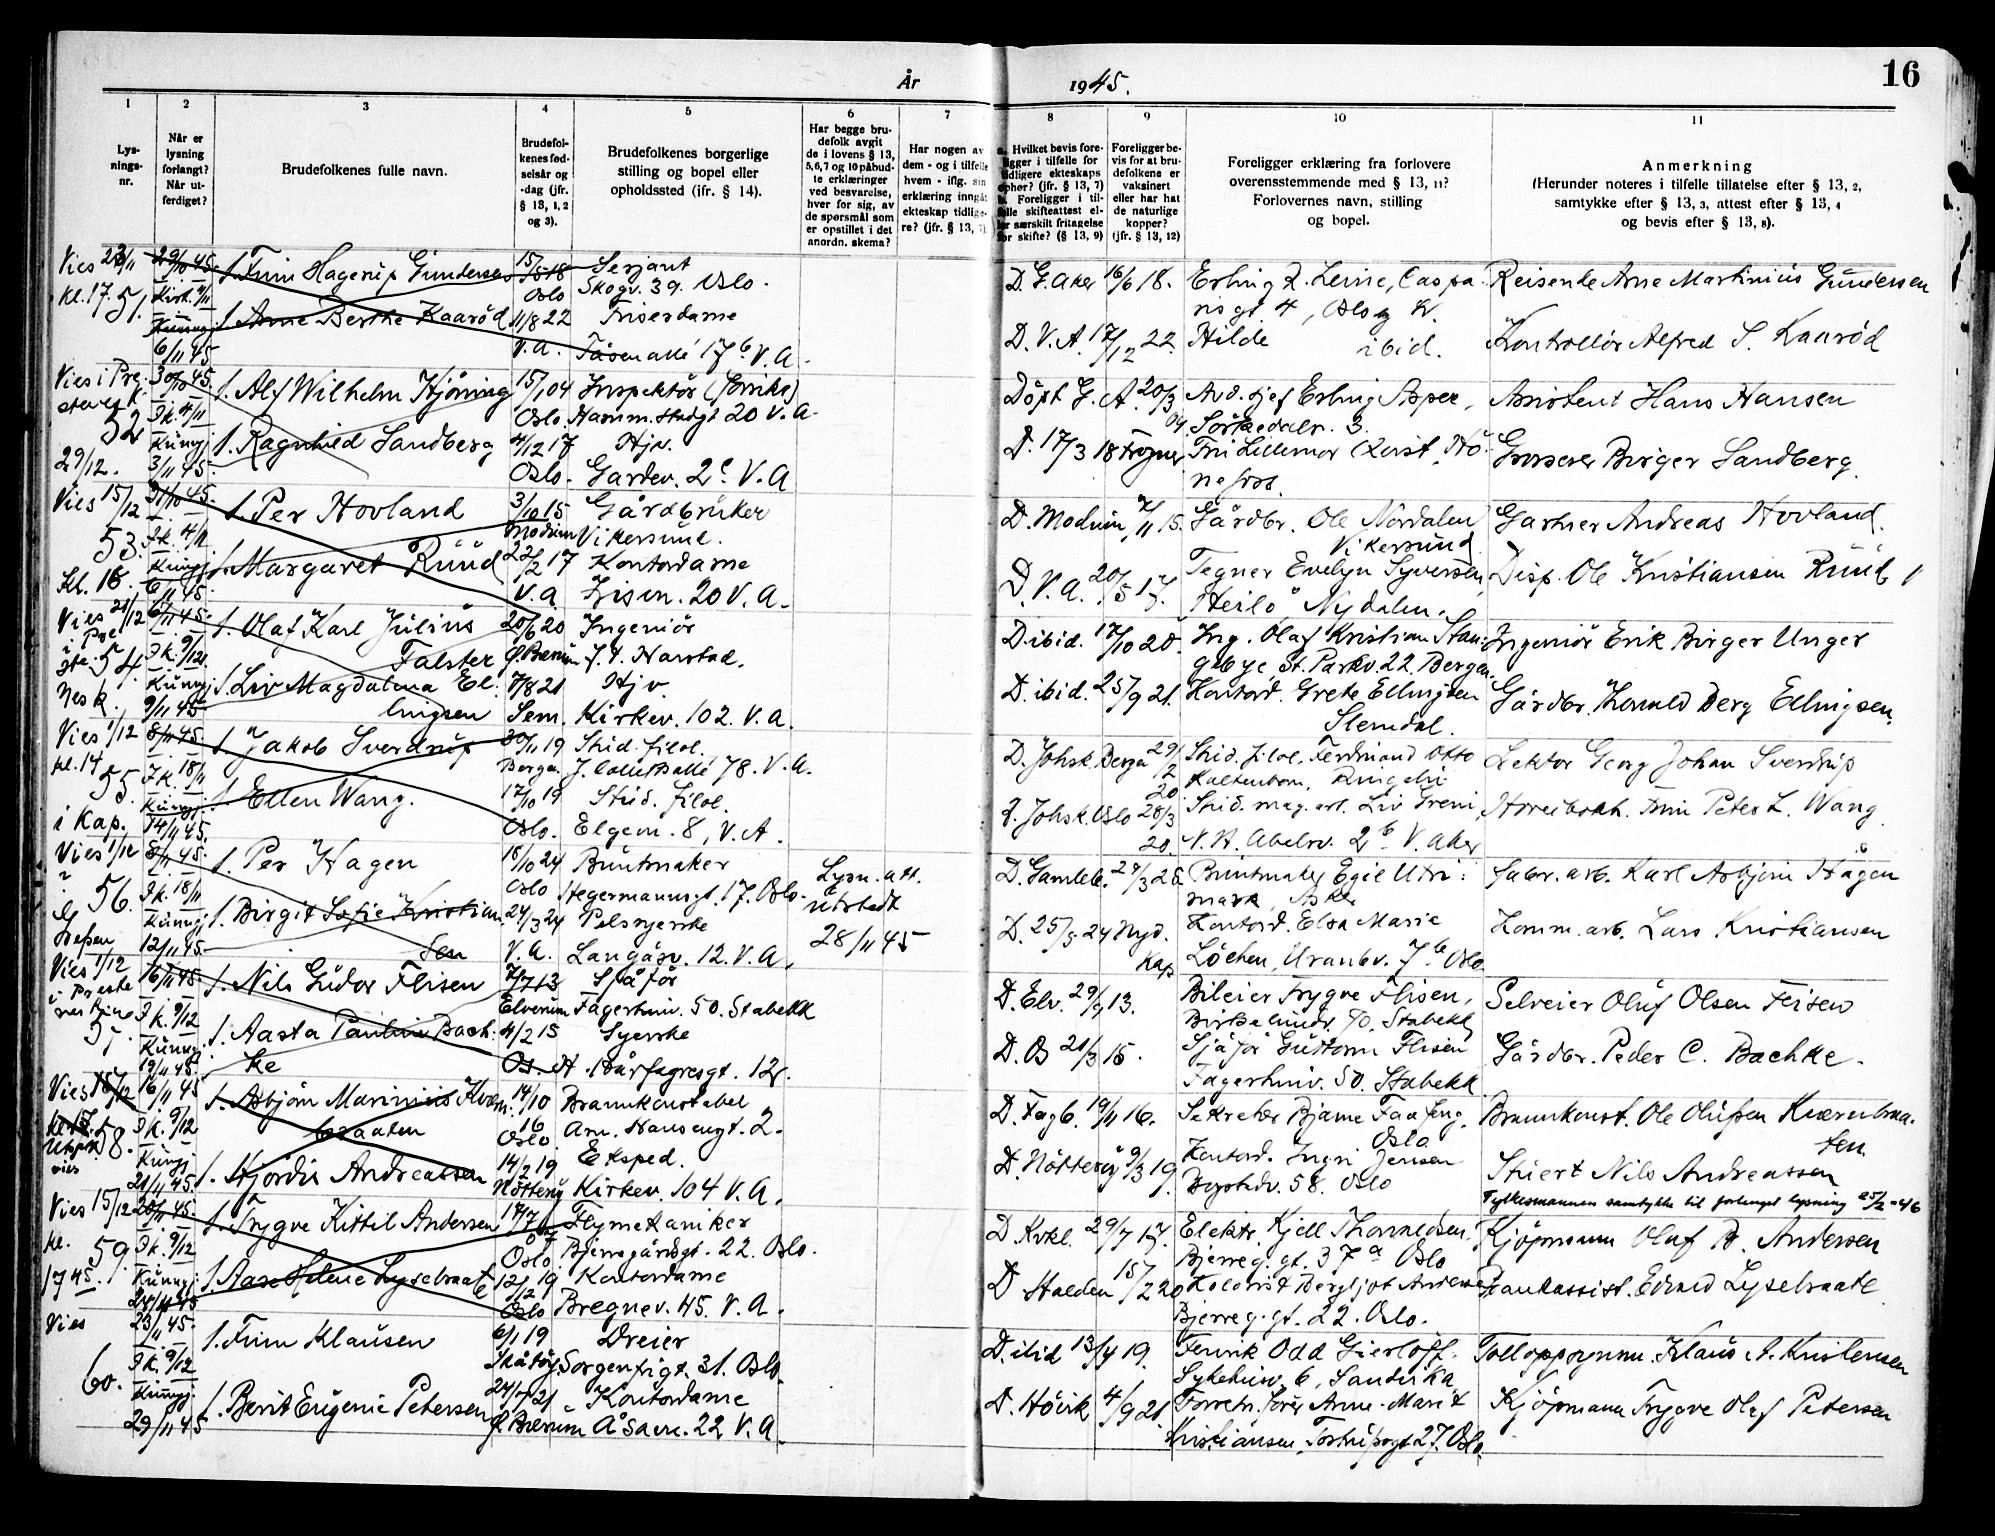 16
År 1945.
1 2 3 4 5 6 7 8 9 10 11
Lys-
nings-
nr.
Når er
lysning
forlangt?
Når ut-
ferdiget?
Brudefolkenes fulle navn.
Brudefol-
kenes fød-
selsår og
-dag (jfr.
§ 13, 1, 2
og 3).
Brudefolkenes borgerlige
stilling og bopel eller
opholdssted (ifr. § 14).
Har begge bru-
defolk avgit
de i lovens § 13,
5,6,7 og 10 påbud-
te erklæringer
ved besvarelse,
hver for sig, av
de spørsmål som
er opstillet i det
anordn. skema?
Har nogen av
dem - og i tilfelle
hvem - iflg. sin
erklæring inngåt
ekteskap tidlige-
re? (jfr. § 13, 7)
a. Hvilket bevis fore-
ligger i tilfelle for
tidligere ekteskaps
ophør? (jfr. § 13, 7)
b. Foreligger i til-
felle skifteattest el-
ler særskilt fritagelse
for skifte? (§ 13, 9)
Foreligger be-
vis for at bru-
defolkene er
vaksinert
eller har hat
de naturlige
kopper?
(jfr. § 13, 12)
Foreligger erklæring fra forlovere
overensstemmende med § 13, 11?
Forlovernes navn, stilling
og bopel.
Anmerkning
(Herunder noteres i tilfelle tillatelse efter § 13, 2,
samtykke efter § 13, 3, attest efter § 13, 4
og bevis efter § 13, 8).
Vies 23/11 29/10 45. f. Finn Hagerup Gundersen 15/5 18 Serjant D. G. Aker 16/6 18. Erling R. Leine, Caspa Reisende Arne Martinius Gundersen
kl. 17. 51. Kirk. 4/11 Oslo Skogv. 39. Oslo. risgt. 4, Oslo og
Kunngj. f. Anne Berthe Kaarød 11/8 22 Friserdame D. V. A. 17/12 22. Hilde ibid. Kontrollør Alfred S. Kaarød
6/11 45 V.A. Tåsenallé 17 b V. A.
Vies i Pre- 30/10 45. f. Alf Wilhelm Hjörning 15/1 04 Inspektör Döpt G. A. 20/3 Avd. sjef Erling Asper, Assistent Hans Hansen
52 I k. 4/11 Oslo. 20 V. A. 04. Sörkedalv. 3.
Kunngj. f. Ragnhild Sandberg 4/12 17 Hjv. D. 17/3 18 Frogner Lillemor Grosserer Birger Sandberg
29/12. 3/11 45. Oslo. Gardev. 2 c V. A
Vies 15/12 31/10 45. f. Per Hovland 3/10 15 Gårdbruker D. Modum, 7/11 15. Gårdbr. Ole Nordalen Gartner Andreas Hovland.
53. I k. 4/11 Modum Vikersund. Vikersund
Kunngj f. Margaret Ruud 22/2 17 Kontordame D. V. A. 20/5 17. Tegner Evelyn Syversen, Disp. Ole Kristiansen Ruud
Kl. 16. 6/11 45. V. A 20 V. A. Nydalen.
Vies 21/12 6/11 45. f. Olaf Karl Julius 20/6 20 Ingeniör D. ibid. 17/10 20. Ing. Olaf Kristian Ingeniör Erik Birger Unger
i Pre 54. I k. 9/12. Falster Ø. Bærum Harstad. St. Parkv. 22. Bergen.
Kunngj. f. Liv Magdalena El- 7/8 21 Hjv. D. ibid. 25/9 21. Kontord. Grete Ellingsen Gårdbr. Berg Ellingsen.
nesk. 9/11 45 lingsen Sem. Kirkev. 102. V. A. Slemdal.
Vies 1/12 8/11 45. f. Jakob Sverdrup 30/11 19 Stud. filol. D. Johsk. Bergen 29/2 Stud. filol. Ferdinand Otto Lektor Georg Johan Sverdrup
kl. 14 55. I k. 18/11 Bergen J. Collettsallé 78. V. A. 20 Kaltenborn,
Kunngj. f. Ellen Wang. 17/10 19 Stud. filol. Johsk. Oslo 28/3 Stud. mag. art. Liv Greni, Finn Peter L. Wang.
i Kap. 14/11 45. Oslo. Elgev. 8, V. A. 20. N. H. Abelsv. 2 b V. Aker
Vies 1/12 8/11 45. f. Per Hagen 18/10 24 Buntmaker Lysn. att. D. Gamleb. 29/3 25. Buntmaker Egil fabr. arb. Karl Asbjörn Hagen
56. I k. 18/11 Oslo Hegermannsgt. 17. Oslo. Utstedt
Kunngj. f. Birgit Sofie Kristian- 24/3 24 Pelssyerske 28/11 45 D. 25/5 24 Nyd. Kontord. Elsa Marie Komm. arb. Lars Kristiansen
12/11 45. sen V. A. Langåsv. 12. V. A. Kap Löchen, Uranbv. 7 b Oslo.
Vies 1/12 16/11 45. f. Nils Gudor Flisen 7/7 13 Sjåför D. Elv. 29/9 13. Bileier Trygve Flisen, Selveier Oluf Olsen Flisen
i Preste I k. 9/12 Elverum Fagerhuiv. 50. Stabekk Stabekk
57 Kunngj. f. Aasta Pauline Bach- 4/2 15 Syerske D. Os 21/3 15. Sjåför Guttorm Flisen Gårdbr. Peder C. Bachke.
19/11 45. ke Os. H. Hårfagresgt. 12. Fagerhuiv. 50. Stabekk
Vies 15/12 16/11 45 f. Asbjörn Marinius Kvern- 14/10 Brannkonstabel D. Fagb. 19/11 16. Sekretær Bjarne Brannkonst. Ole Olufsen Kvernbraa-
58. I k. 9/12 braaten 16 Oslo Arn. Hansengt. 2. Oslo ten.
Kunngj. f. Hjördis Andreassen 14/2 19 Eksped. D. Nötteröy 9/3 19. Kontord. Ingri Jensen Nils Andreassen
21/11 45. Nötteröy Kirkev. 104 V. A. Bygdöv. 58. Oslo Fylkesmannen samtykke til forlenget lysning 25/2-46
Vies 15/12 20/11 45. f. Trygve Kittil Andersen 17/7 Flymekaniker D. Kvkl. 29/7 17. Elektr. Kjell Kjöpmann Olaf B. Andersen
kl. 59. I k. 9/12 Oslo Bjerregårdsgt. 22. Oslo. Bjerreg. gt. 37 a Oslo
17 45. Kunngj. f. Aase Helene Lyselbraate 12/12 19 Kontordame D. Halden 15/2 20 Bergljot Andersen Bankassist. Edvard Lyselbraate
24/11 45 Oslo Bregnev. 45. V. A. Bjerreg. gt. 22. Oslo.
Vies 23/11 45. f. Finn Klausen 6/1 19 Dreier D. ibid 13/4 19. Fenrik Odd Gierløff. Tolloppsynsm. Klaus A. Kristensen
60. I k. 9/12 Skåtöy Sorgenfrigt. 31. Oslo. 6, Sandvika
Kunngj. f. Berit Eugenie Petersen 24/7 21 Kontordame D. Hövik 4/9 21. Anne-Marit Kjöpmann Trygve Olaf Petersen
29/11 45 Ø. Bærum Åsavn. 22 V. A. Kristiansen, Tostrupsgt 27. Oslo.